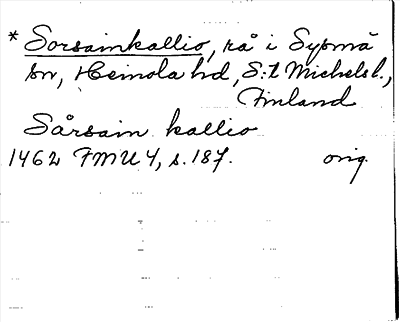 * Sorsainkallio, rå i Sysmä
sn, Heinola hd, S:t Michels l.,
Finland
Sårsain kallio
1462 FMU 4, s. 187. orig.